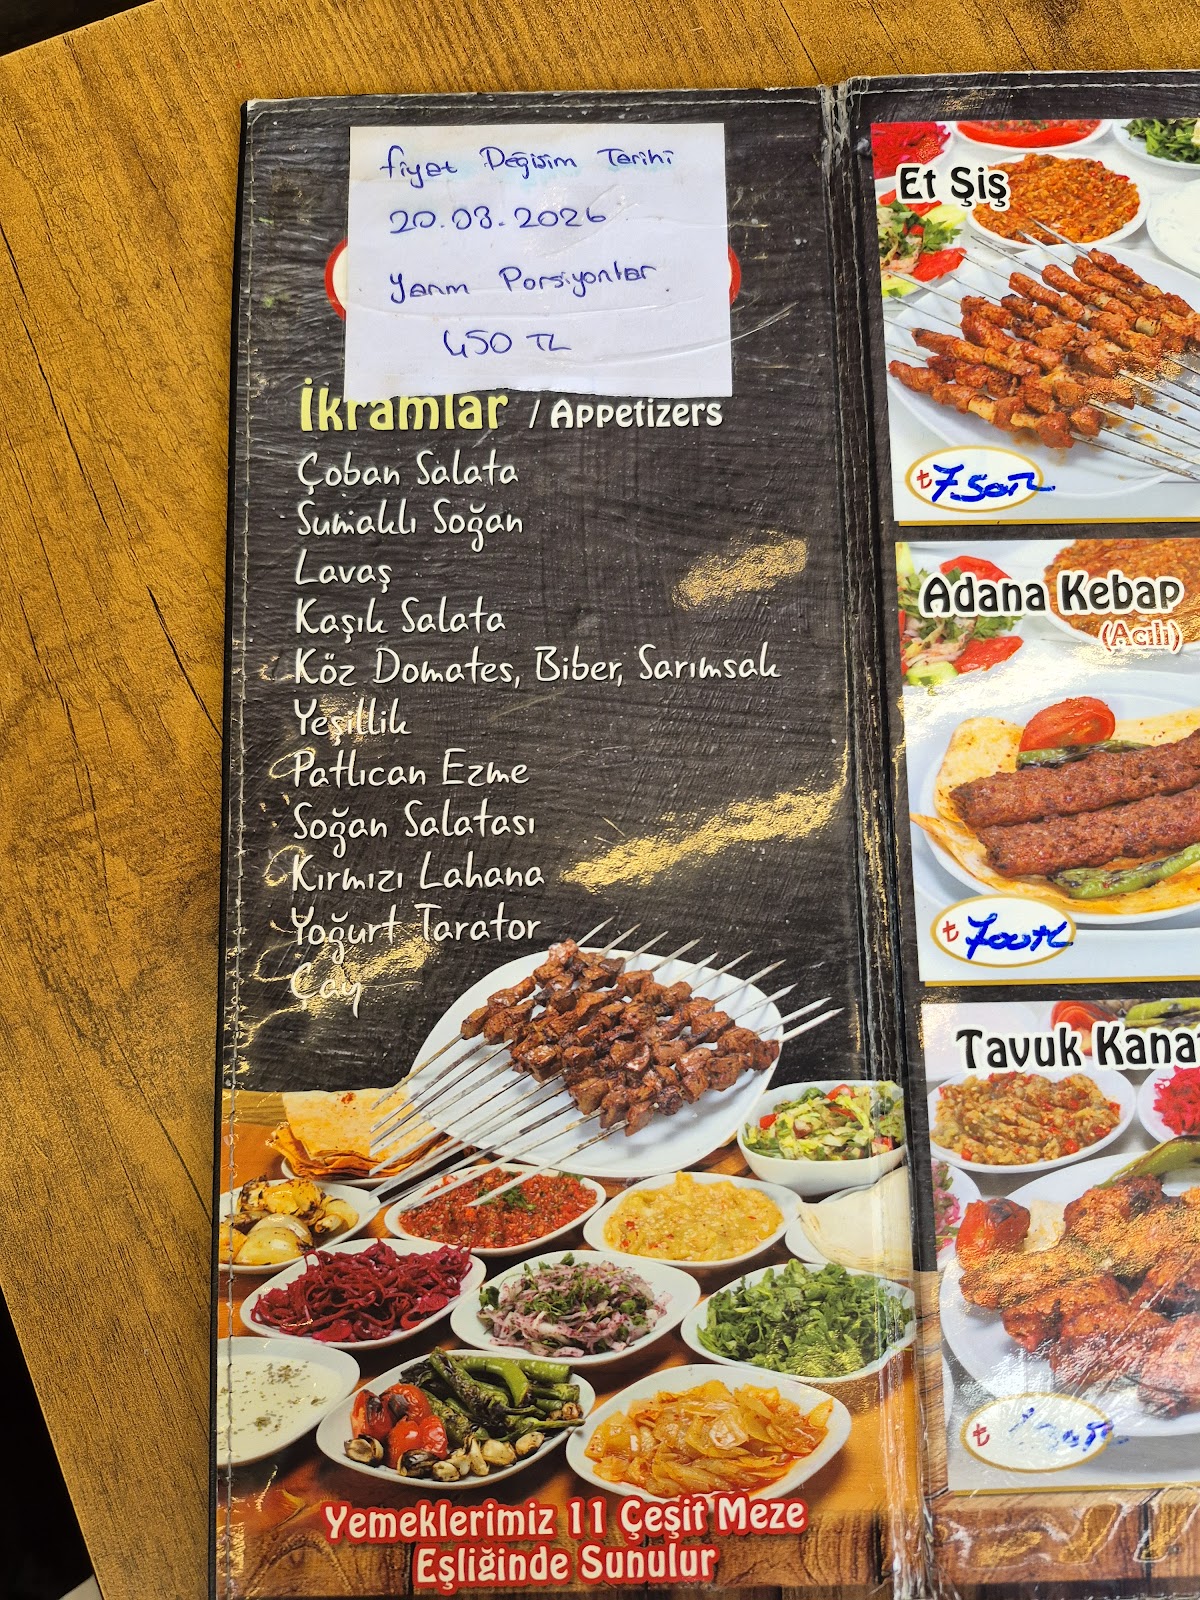 fiyat Değişim Tarihi
20.03.2026
Yarım Porsiyonlar
450 TL
İkramlar / Appetizers
Çoban Salata
Sumaklı Soğan
Lavaş
Kaşık Salata
Köz Domates, Biber, Sarımsak
Yeşillik
Patlıcan Ezme
Soğan Salatası
Kırmızı Lahana
Yoğurt Tarator
Çay
Yemeklerimiz 11 Çeşit Meze
Eşliğinde Sunulur
Et Şiş
₺ 750TL
Adana Kebap
(Acılı)
₺ 700TL
Tavuk Kanat
₺